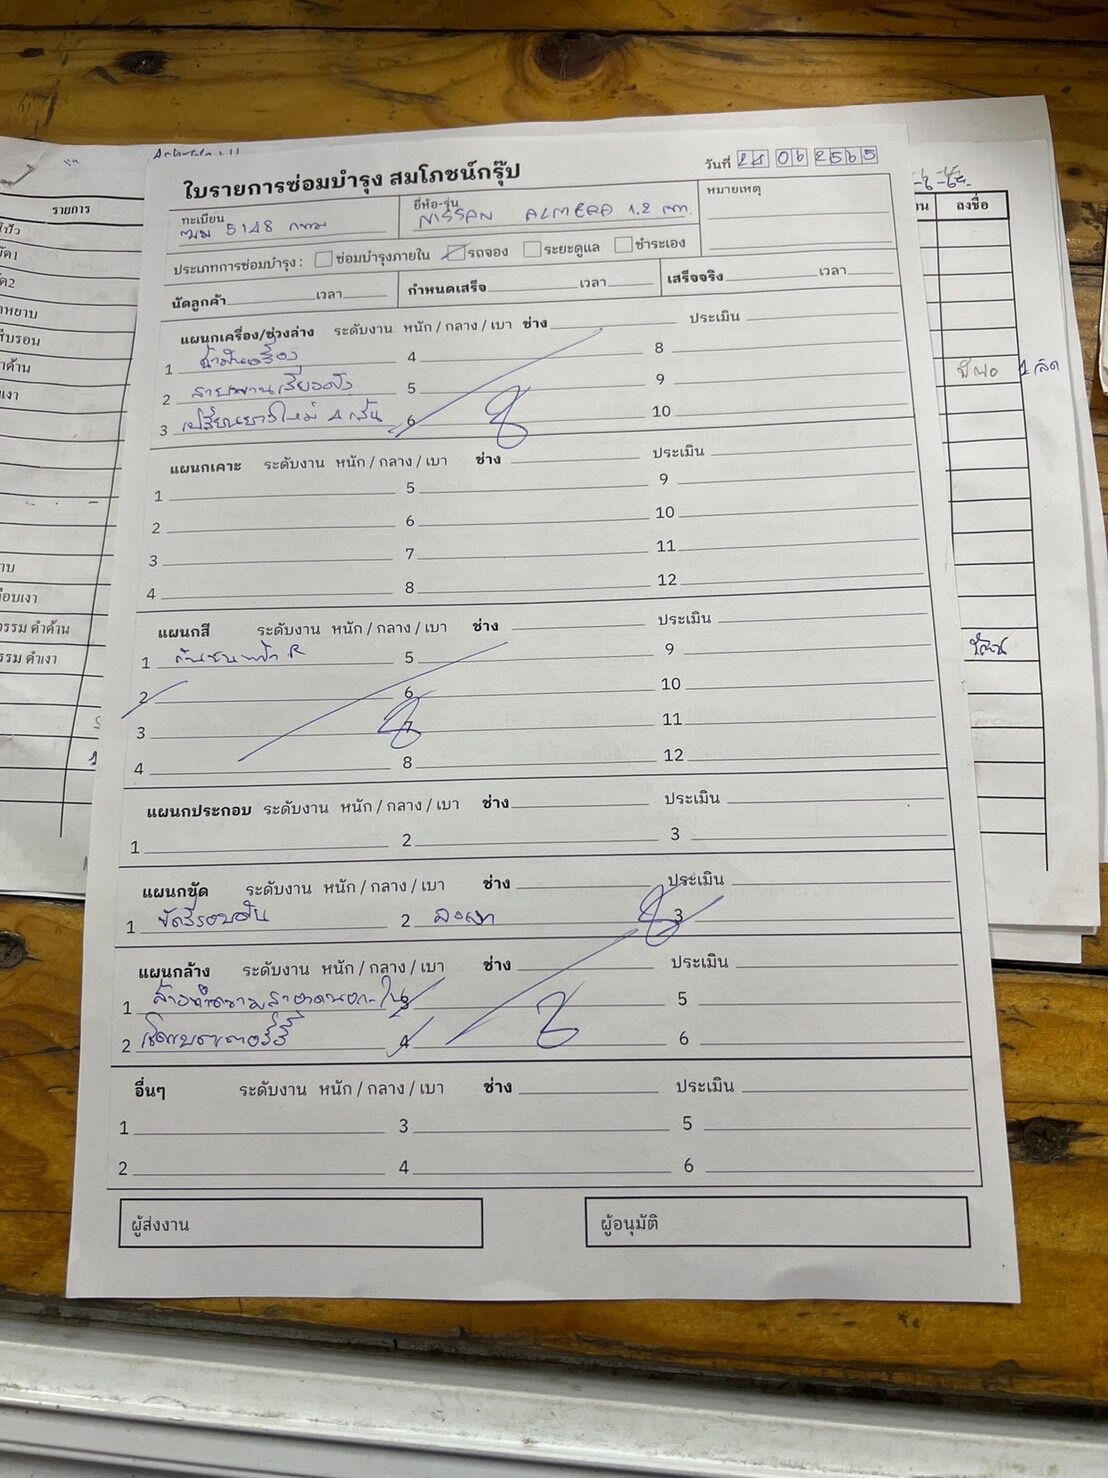 ใบรายการซ่อมบำรุง สมโภชน์กรุ๊ป
วันที่ 24 06 2565
ทะเบียน 5148 กทม
ยี่ห้อ-รุ่น NISSAN ALMERA 1.2
หมายเหตุ
ประเภทการซ่อมบำรุง : ซ่อมบำรุงภายใน รถจอง ระยะดูแล ชำระเอง
นัดลูกค้า เวลา กำหนดเสร็จ เวลา เสร็จจริง เวลา
แผนกเครื่อง/ช่วงล่าง ระดับงาน หนัก / กลาง / เบา ช่าง ประเมิน
1 น้ำมันเครื่อง 4 8
2 สายพานเสียงดัง 5 9
3 เปลี่ยนยางใหม่ 4 เส้น 6 10
แผนกเคาะ ระดับงาน หนัก / กลาง / เบา ช่าง ประเมิน
1 5 9
2 6 10
3 7 11
4 8 12
แผนกสี ระดับงาน หนัก / กลาง / เบา ช่าง ประเมิน
1 กันชนหน้า R 5 9
2 6 10
3 7 11
4 8 12
แผนกประกอบ ระดับงาน หนัก / กลาง / เบา ช่าง ประเมิน
1 2 3
แผนกขัด ระดับงาน หนัก / กลาง / เบา ช่าง ประเมิน
1 ขัดสีรอบคัน 2 ลงเงา 3
แผนกล้าง ระดับงาน หนัก / กลาง / เบา ช่าง ประเมิน
1 ล้างทำความสะอาดนอก-ใน 3 5
2 เช็คแบตเตอร์รี่ 4 6
อื่นๆ ระดับงาน หนัก / กลาง / เบา ช่าง ประเมิน
1 3 5
2 4 6
ผู้ส่งงาน
ผู้อนุมัติ
รายการ
ลงชื่อ